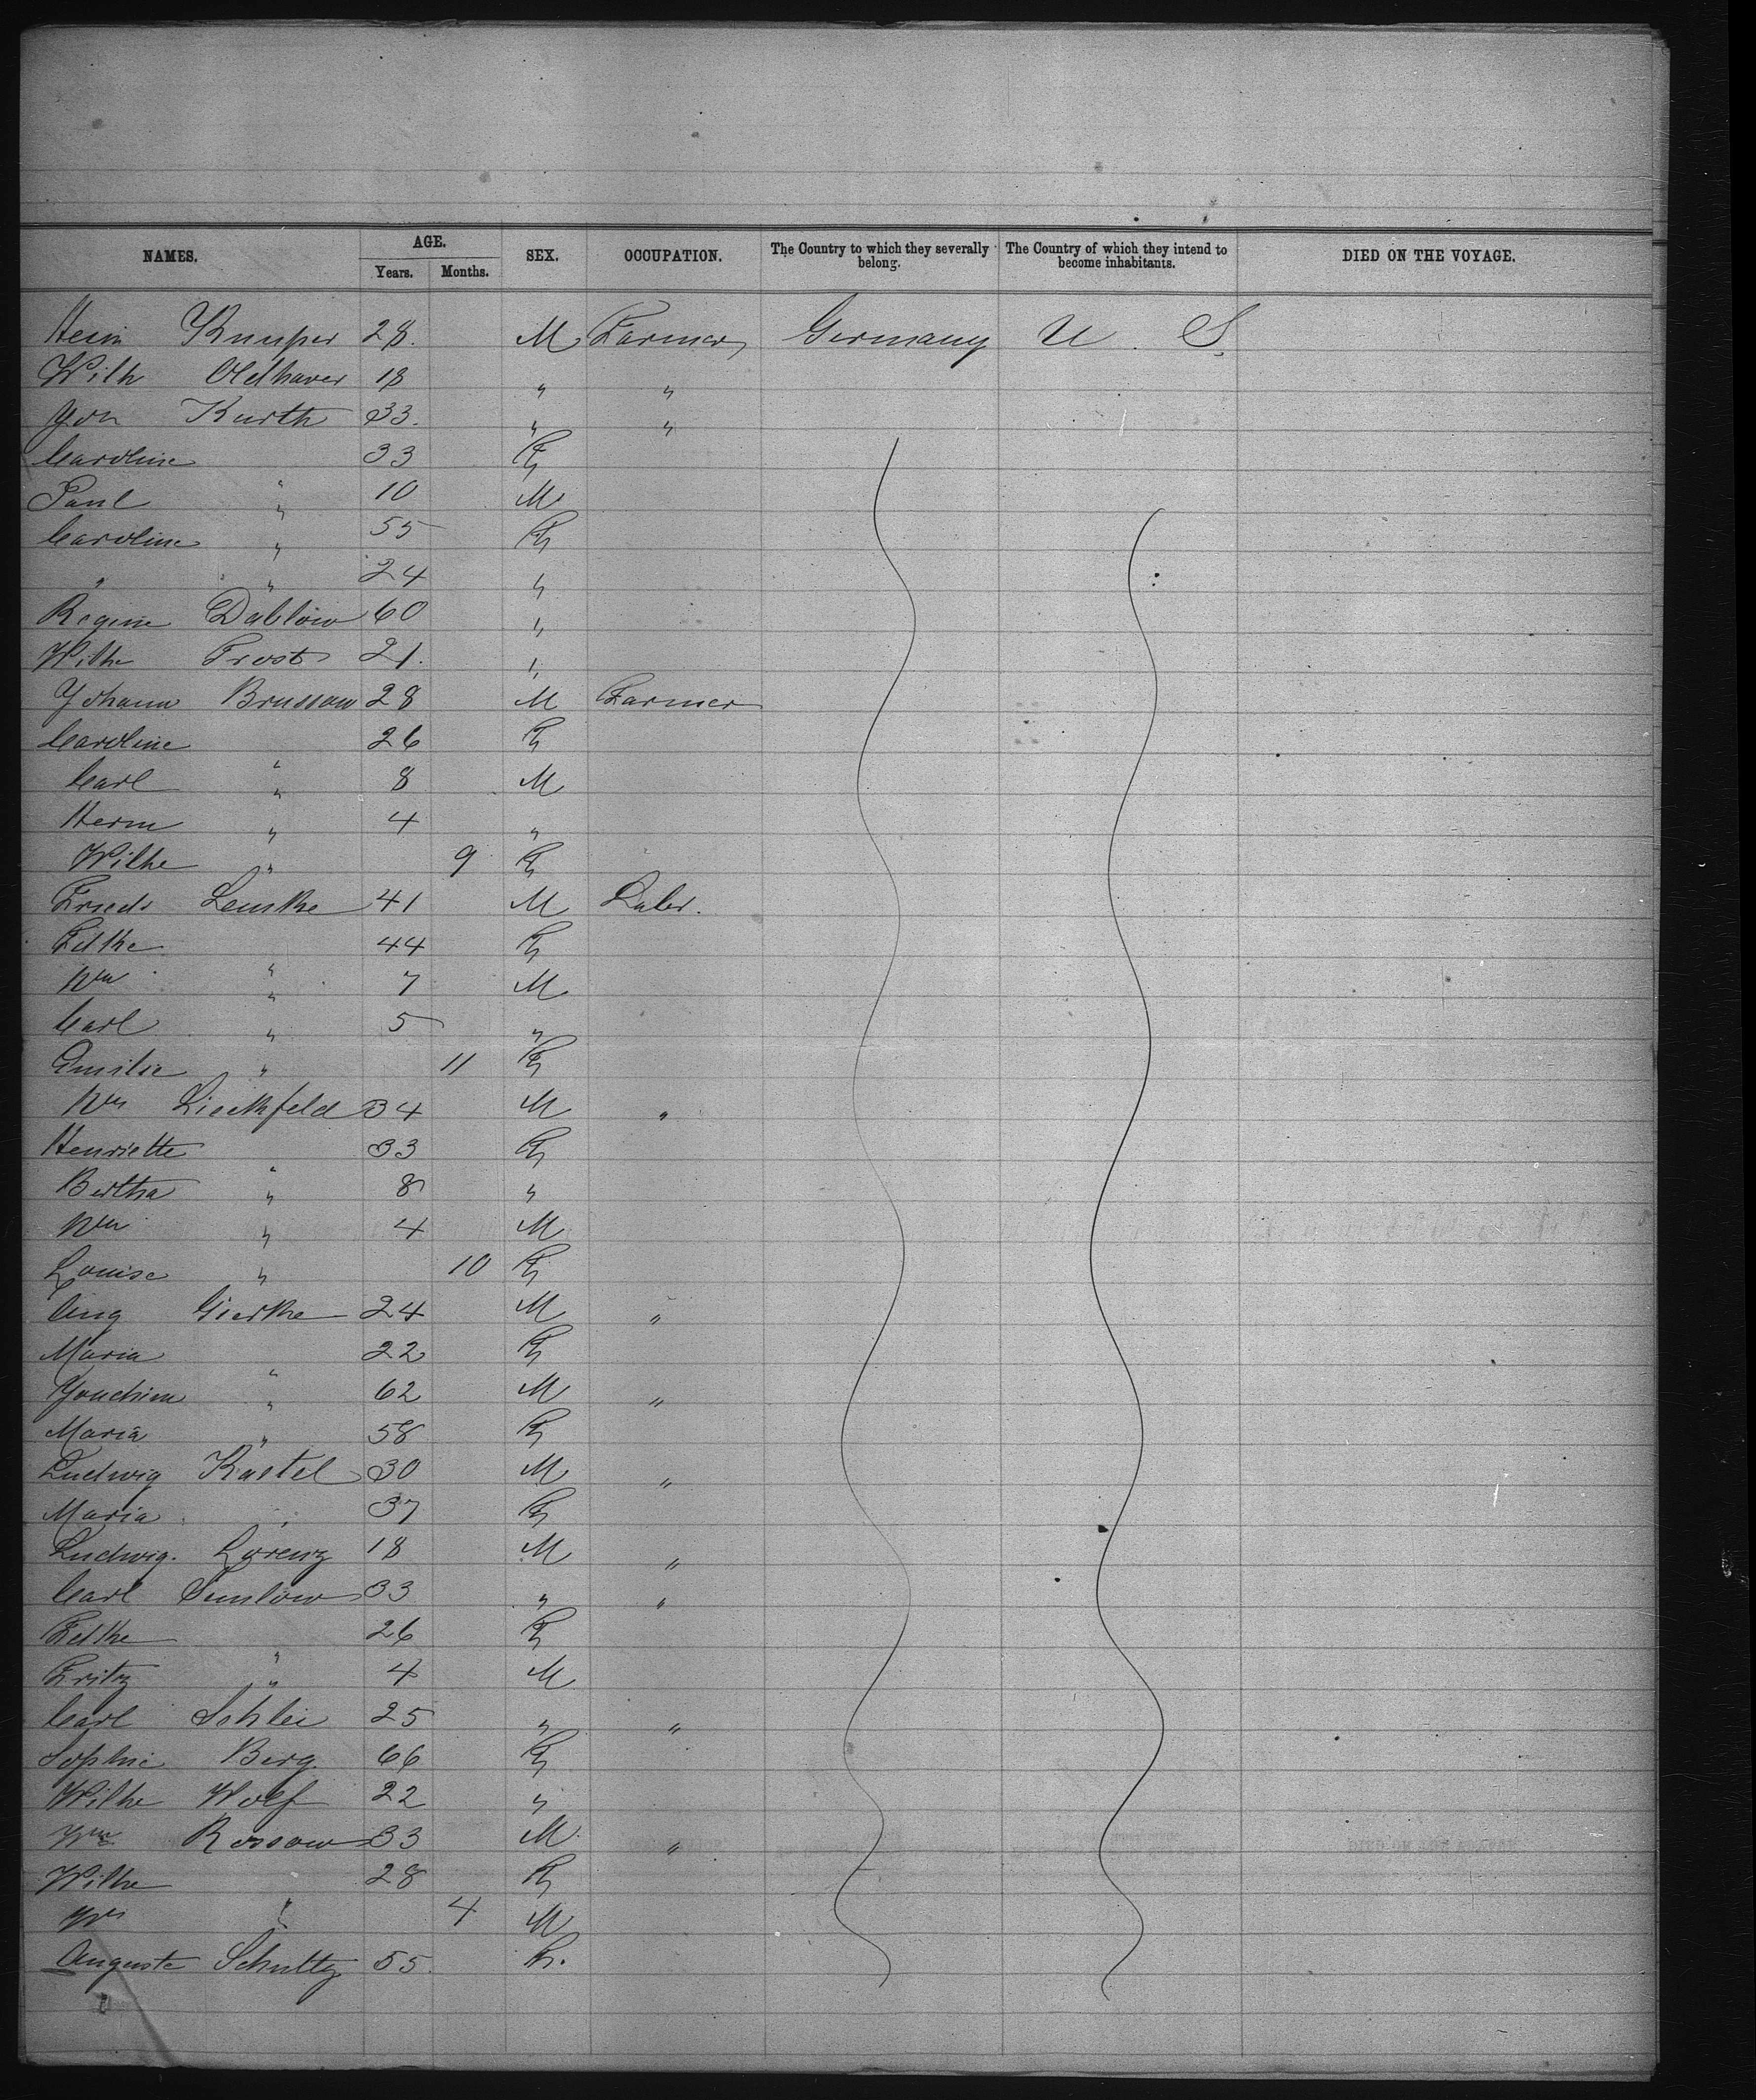 NAMES. AGE. SEX. OCCUPATION. The Country to which they severally belong. The Country of which they intend to become inhabitants. DIED ON THE VOYAGE.
Years. Months.
28. M Farmer Germany U. S
Wilh Oldhaver 18 " "
Joh Kurth 33. " "
Caroline " 33 F
Paul " 10 M
Caroline " 55 F
" " 24 "
Regine Dablow 60 "
Wilhe Frost 21. "
Johann Brussow 28 M Farmer
Caroline " 26 F
Carl " 8 M
Herm " 4 "
Wilhe " 9 F
Friedr Lemke 41 M Labr.
" 44 F
Wm " 7 M
Carl " 5 "
Emilie " 11 F
Wm Lieckfeld 34 M "
Henriette " 33 F
Bertha " 8 "
Wm " 4 M
Louise " 10 F
Aug Gierke 24 M "
Maria " 22 F
Joachim " 62 M "
Maria " 58 F
Ludwig Kastel 30 M "
Maria " 37 F
Ludwig. Lorenz 18 M "
Carl 33 " "
" 26 F
Fritz " 4 M
Carl Schlei 25 " "
Sophie Berg. 66 F
Wilhe Wolf 22 "
Wm Rossow 33 M "
Wilhe " 28 F
Wm " 4 M
Auguste Schultz 55. F.